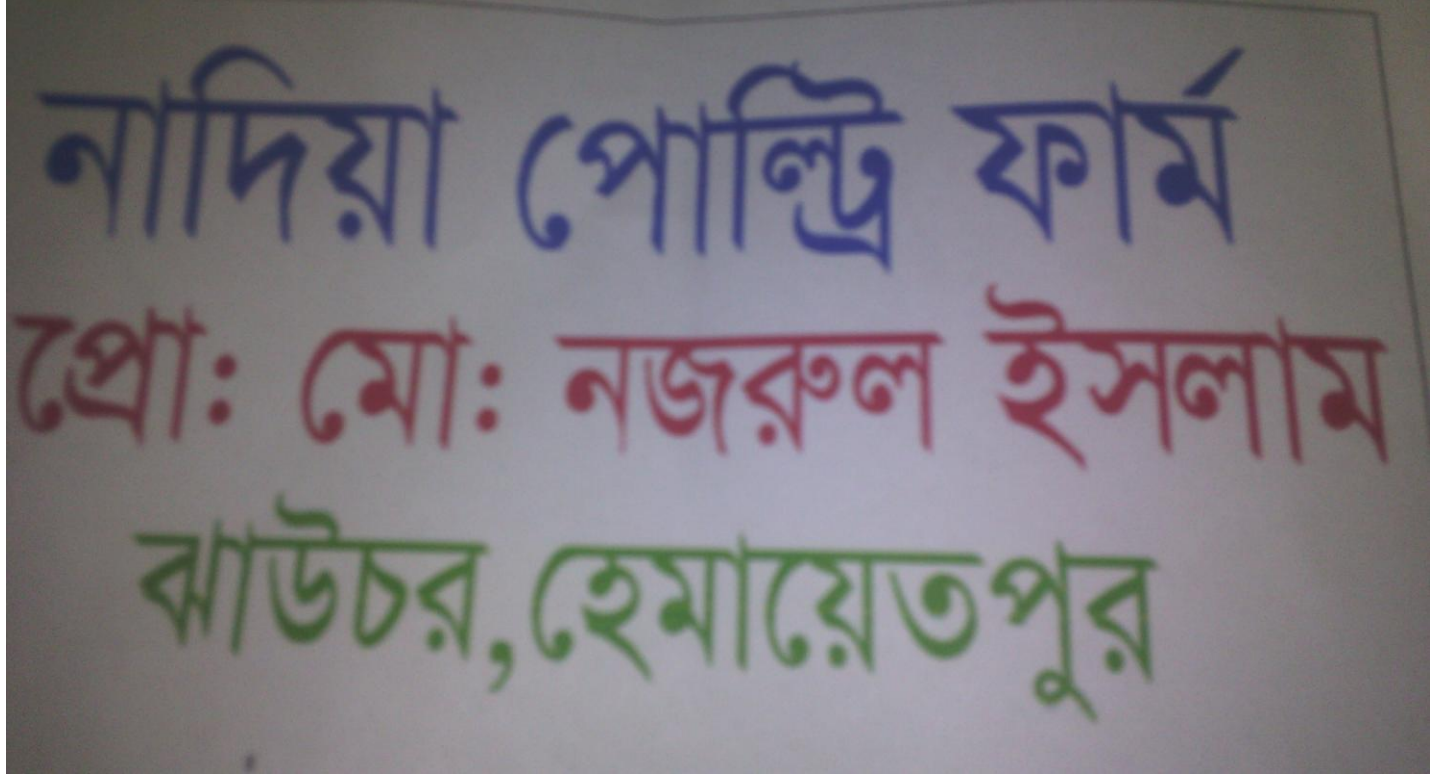 নাদিয়া পোল্ট্রি ফার্ম
প্রো: মো: নজরুল ইসলাম
ঝাউচর,হেমায়েতপুর